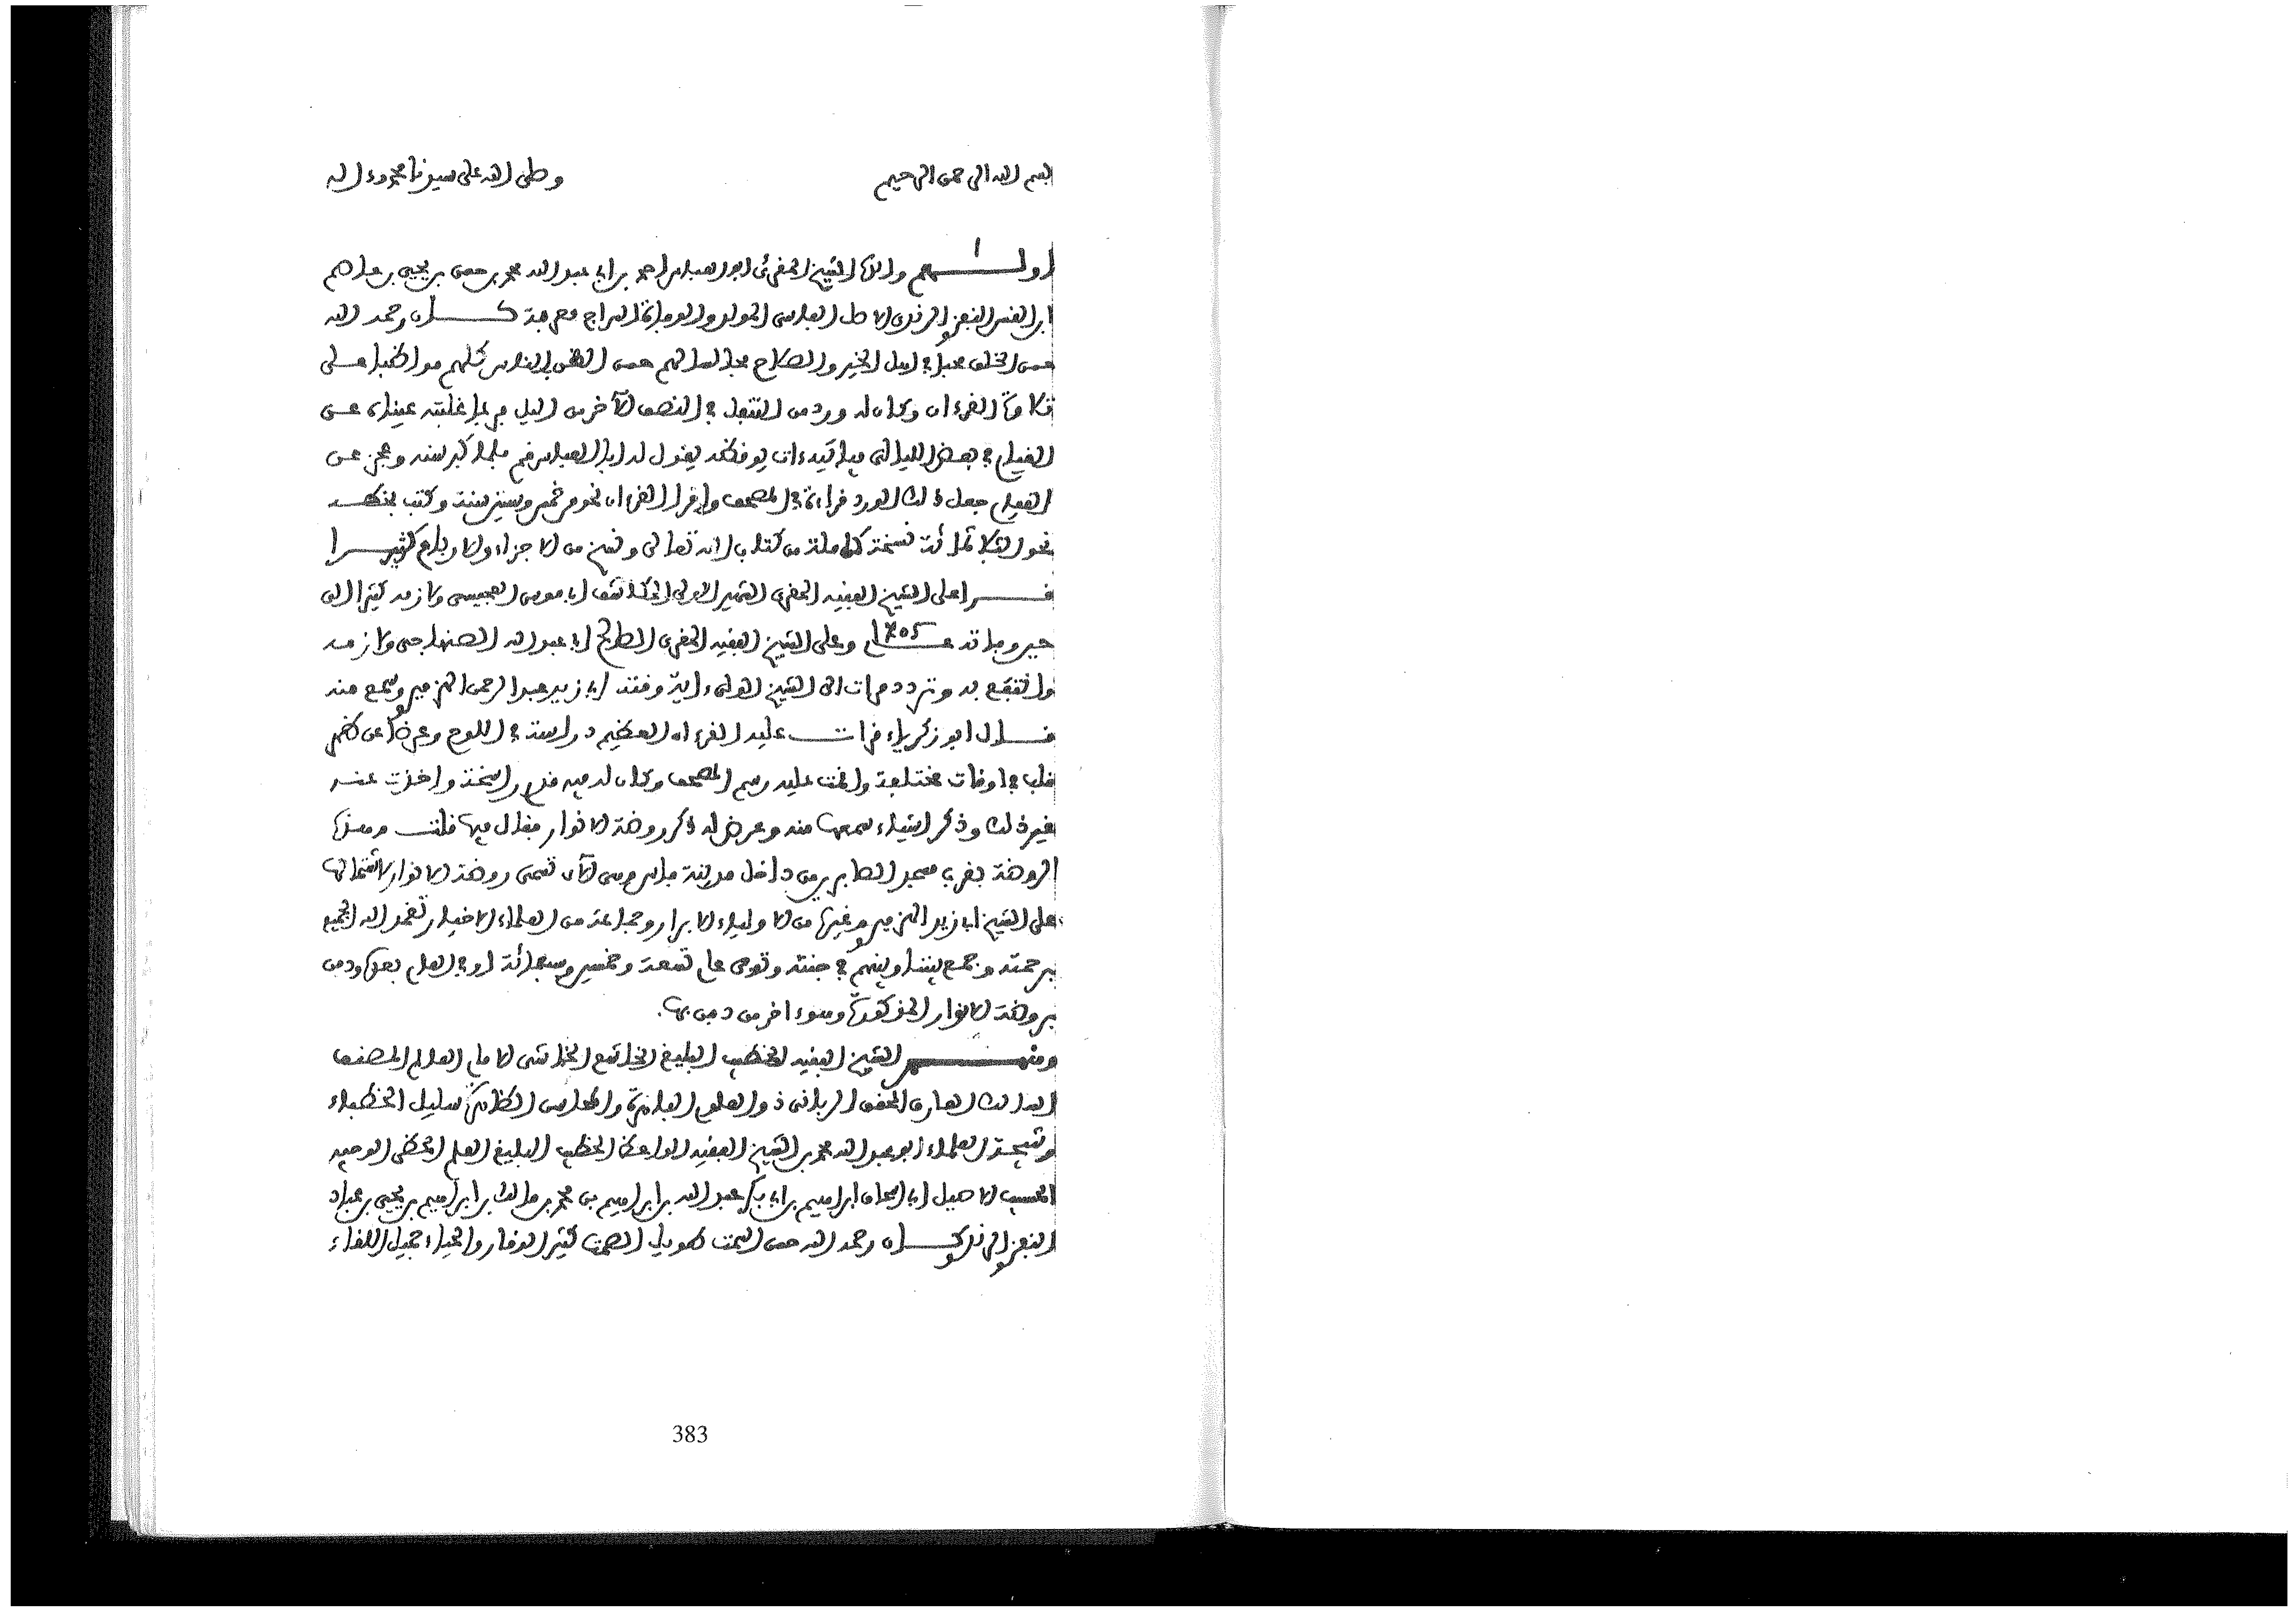 بسم الله الرحمن الرحيم وصلى الله على سيدنا محمد وءاله
أولهم والدنا الشيخ المقرئ أبو العباس أحمد بن أبي عبد الله محمد بن حسن بن يحيى بن عاصم
ابن القس النفزي الرندي الأصل الفاسي المولد والوفاة السراج حرفة كان رحمه الله
حسن الخلق محبا في أهل الخير والصلاح مجالسا لهم حسن الظن بالناس كلهم مواظبا على
تلاوة القرءان وكان له ورد من التنفل في النصف الآخر من الليل فربما غلبته عيناه عن
القيام في بعض الليالي فيأتيه ءات يوقظه يقول له أبا العباس قم فلما كبر سنه وعجز عن
القيام جعل ذلك الورد قراءة في المصحف وأقرأ القرءان نحو من خمس وستين سنة وكتب بخطه
نحو الثلاثمائة نسخة كاملة من كتاب الله تعالى ونسخ من الأجزاء والأرباع كثيرا
قرأ على الشيخ الفقيه المقرئ الشهير الولي المكاشف أبي موسى العجيسي ولازمه كثيرا إلى
حين وفاته عام وعلى الشيخ الفقيه المقرئ الصالح أبي عبد الله الصنهاجي ولازمه
وانتفع به وتردد مرات إلى الشيخ الولي ءاية وقته أبي زيد عبد الرحمن الهزميري وسمع منه
قال أبو زكرياء قرأت عليه القرءان العظيم دراسة في اللوح وعرضا عن ظهر
قلب في أوقات مختلفة وأخذت عليه رسم المصحف وكان له فيه قدم راسخة وأخذت عنه
غير ذلك وذكر أشياء سمعها منه وعرض له ذكر روضة الأنوار فقال فيها قلت وهذه
الروضة بقرب مسجد الصابرين داخل مدينة فاس وهي الآن تسمى روضة الأنوار لاشتمالها
على الشيخ أبا زيد الهزميري وغيره من الأولياء الأبرار وجماعة من العلماء الأخيار تغمد الله الجميع
برحمته وجمع بيننا وبينهم في جنته وتوفي عام تسعة وخمسين وسبعمائة أو في العام بعده ودفن
بروضة الأنوار المذكورة وهو ءاخر من دفن بها.
ومنهم الشيخ الفقيه الخطيب البليغ الخاشع الخاشي الإمام العالم المصنف
السالك العارف المحقق الرباني ذو العلوم الباهرة والمحاسن الظاهرة سليل الخطباء
ونتيجة العلماء أبو عبد الله محمد بن الشيخ الفقيه الواعظ الخطيب البليغ العلم المحظى الوجيه
الحسيب الأصيل أبي إسحاق إبراهيم بن أبي بكر عبد الله بن إبراهيم بن محمد بن مالك بن إبراهيم بن يحيى بن عباد
النفزي الرندي كان رحمه الله حسن السمت طويل الصمت كثير الوقار والحياء جميل اللقاء
383